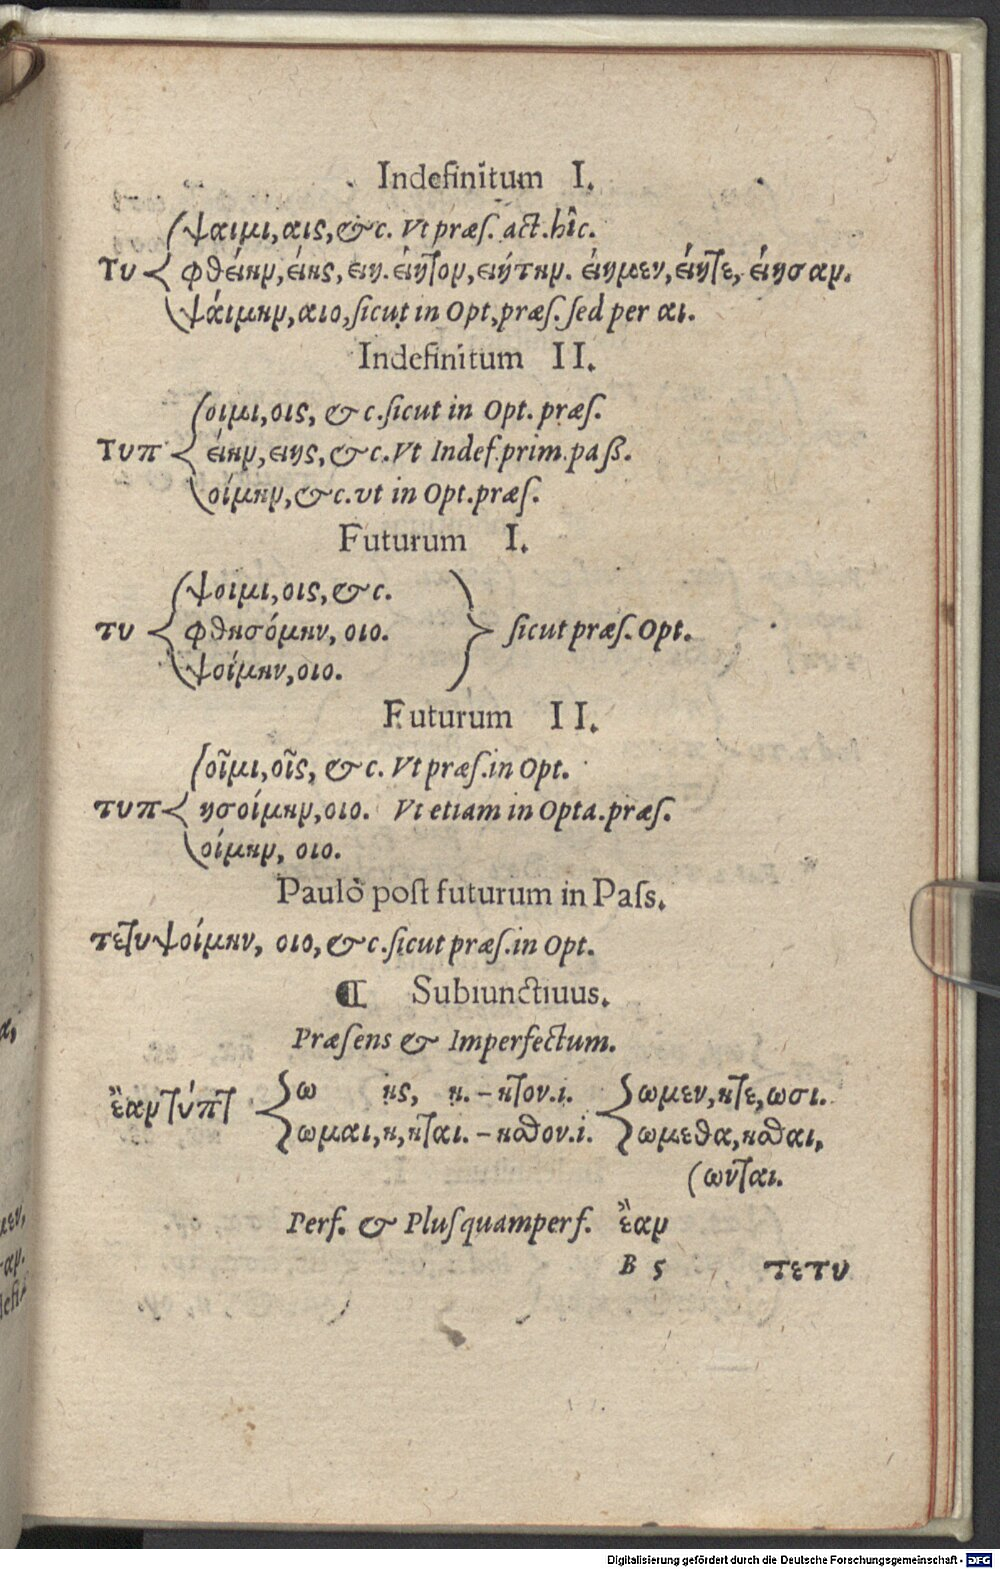 Indefinitum I.
ψαιμι, αις, &c. Vt præſ. act. hîc.
Τυ φθείην, είης, είη. είητον, ειήτην. είημεν, είητε, είησαν.
ψάιμην, αιο, ſicut in Opt, præſ. ſed per αι.
Indefinitum II.
οιμι, οις, &c. ſicut in Opt. præſ.
Τυπ είην, ειης, &c. Vt Indef. prim. paß.
οίμην, &c. vt in Opt. præſ.
Futurum I.
ψοιμι, οις, &c.
τυ φθησόμην, οιο. ſicut præſ. Opt.
ψοίμην, οιο.
Futurum II.
οῖμι, οῖς, &c. Vt præſ. in Opt.
τυπ ησοίμην, οιο. Vt etiam in Opta. præſ.
οίμην, οιο.
Paulò poſt futurum in Paſs.
τετυψοίμην, οιο, &c. ſicut præſ. in Opt.
¶ Subiunctiuus.
Præſens & Imperfectum.
ἒαν τύπτ ω ης, η. – ητον. ι. ωμεν, ητε, ωσι.
ωμαι, η, ηται. – ησθον. ι. ωμεθα, ησθαι,
(ωνται.
Perf. & Pluſquamperf. ἒαν
B 5 τετυ
α,
μεν,
αν.
deſi-
Digitalisierung gefördert durch die Deutsche Forschungsgemeinschaft - DFG